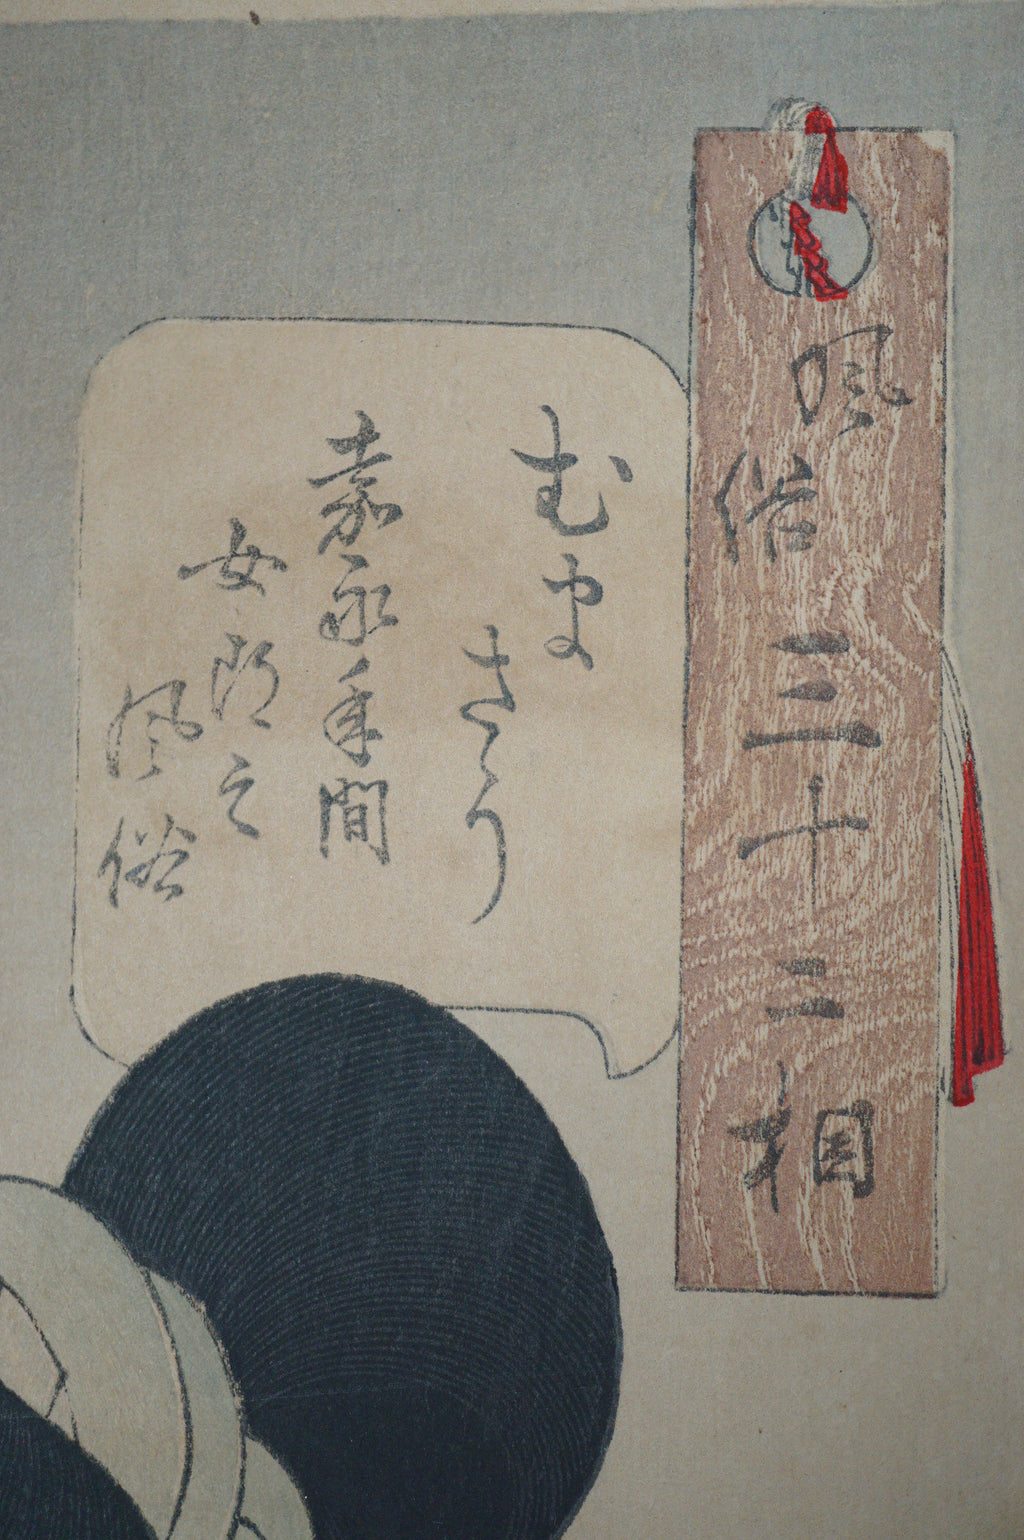 風俗三十二相
むま
さう
嘉永年間
女郎之
風俗